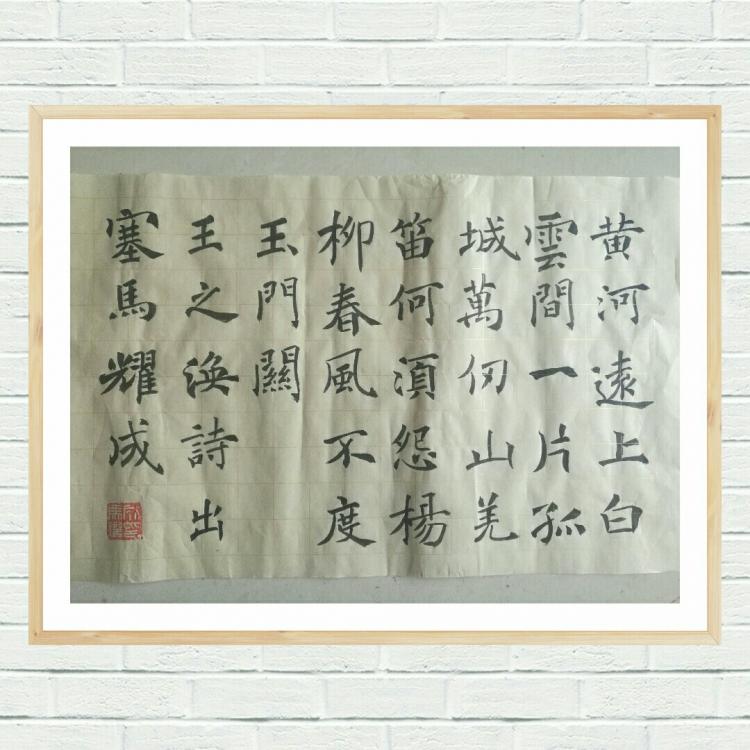 黄河遠上白
雲間一片孤
城萬仞山羌
笛何湏怨楊
柳春風不度
玉門關
王之渙詩出
塞馬耀成